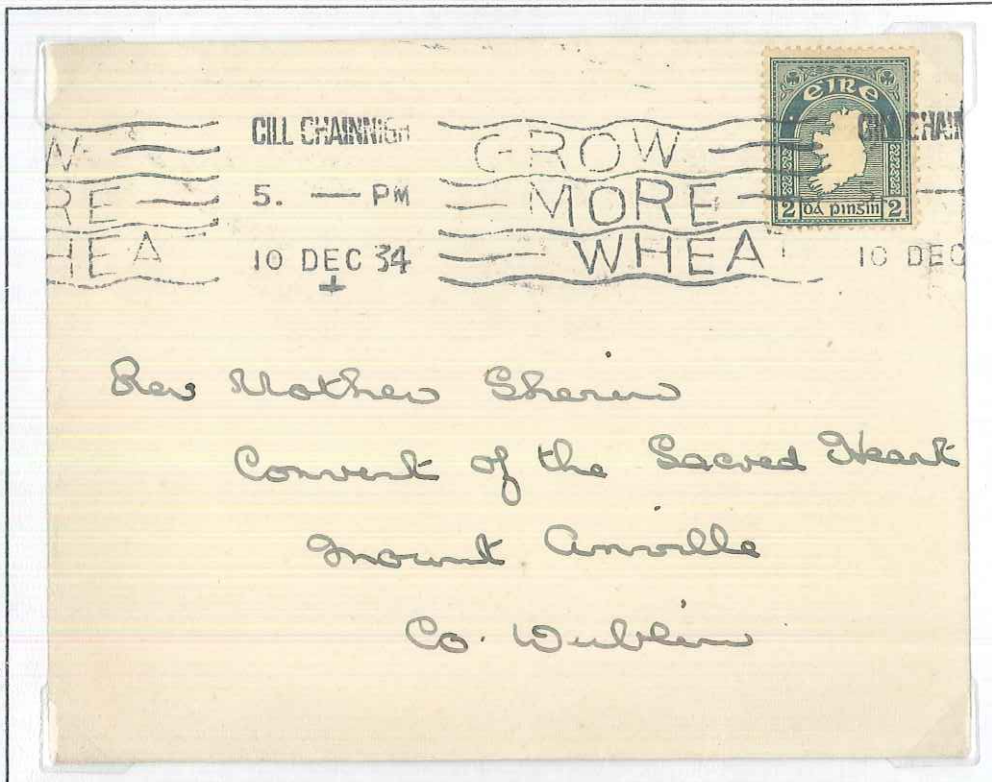 CILL CHAINNIGH
5. — PM
10 DEC 34
GROW
MORE
WHEA
W
RE
HEA
EIRE
2 DÁ PINGIN 2
CILL CHAIN
5
10 DEC
Rev Mother Sherin
Convent of the Sacred Heart
Mount Anville
Co. Dublin